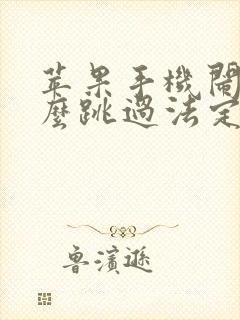 苹果手機鬧
麼跳過法定
魯濱遜